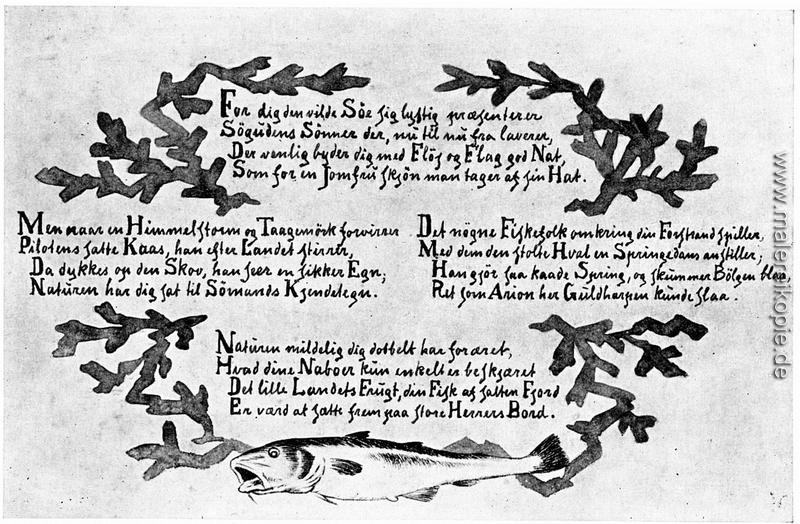 For dig den vilde Söe sig lystig præsenterer
Sögudens Sönner der, nu til nu fra laverer,
Der venlig byder dig med Flöj og Flag god Nat,
Som for en Jomfrü skjön man tager af sin Hat.
Men naar en Himmelstorm og Taagemörk forvirrer
Pilotens satte Kaas, han efter Landet stirrer,
Da dykkes op den Skov, han seer en sikker Egn;
Naturen har dig sat til Sömands Kjendetegn.
Det nögne Fiskefolk omkring din Forstrand spiller,
Med dem den stolte Hval en Springedans anstiller;
Han gjör saa kaade Spring, og skummer Bölgen blaa,
Ret som Arion her Guldharpen kunde slaa.
Naturen mildelig dig dobbelt har foræret,
Hvad dine Naboer kün enkelt er beskjæret
Det lille Landets Frugt, din Fisk af salten Fjord
Er værd at sætte frem paa store Herrers Bord.
www.malereikopie.de